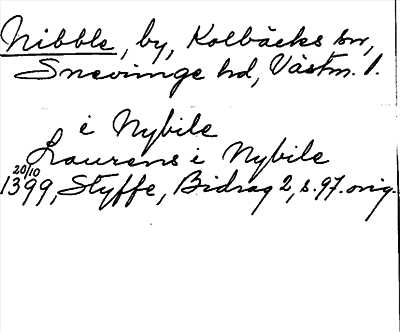 Nibble, by, Kolbäcks sn,
Snevringe hd, Västm. l.
i Nybile
Laurens i Nybile
20/10
1399, Styffe, Bidrag 2, s. 97. orig.